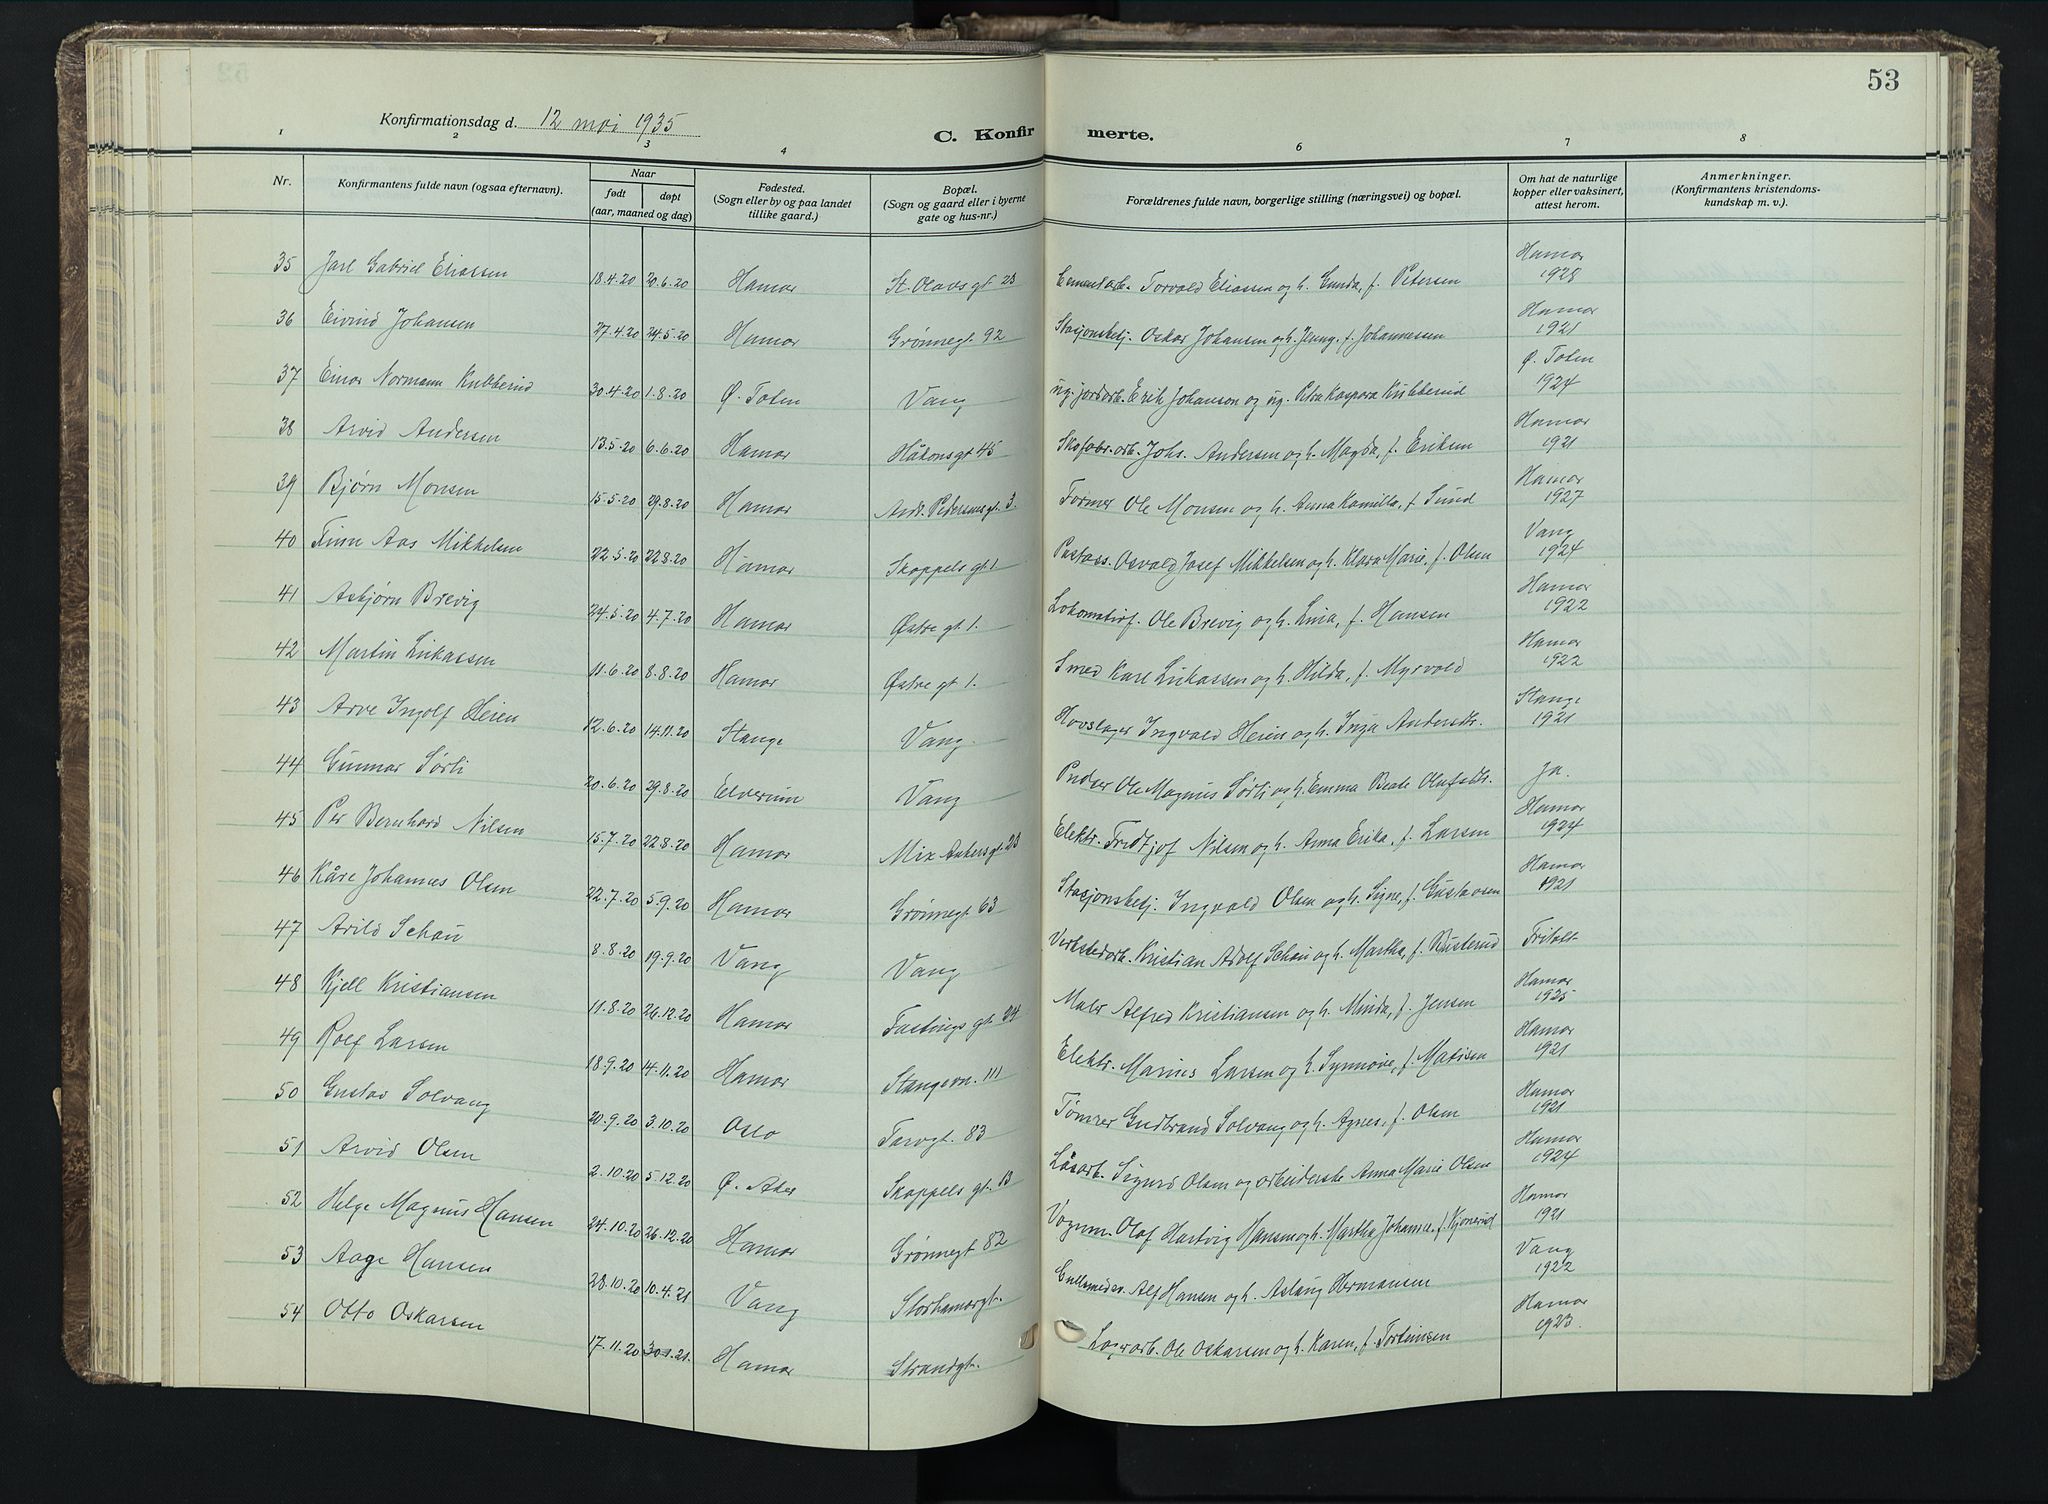 53
Konfirmationsdag d. 12 mai 1935
C. Konfirmerte.
1 2 3 4 6 7 8
Nr. Konfirmantens fulde navn (ogsaa efternavn). Naar født døpt (aar, maaned og dag) Fødested. (Sogn eller by og paa landet tillike gaard.) Bopæl. (Sogn og gaard eller i byerne gate og hus-nr.) Forældrenes fulde navn, borgerlige stilling (næringsvei) og bopæl. Om hat de naturlige kopper eller vaksinert, attest herom. Anmerkninger. (Konfirmantens kristendoms-kundskap m. v.).
35 Jarl Gabriel Eliassen 18.4.20 20.6.20 Hamar St. Olavsgt 23 Torvald Eliassen og h. Gunda, f. Petersen Hamar 1928
36 Eivind Johansen 27.4.20 24.5.20 Hamar Grønnegt. 92 Stasjonsbetj. Oskar Johansen og h. Jenny, f. Johannessen Hamar 1921
37 Einar Normann Kubberud 30.4.20 1.8.20 Ø. Toten Vang ug. jordarb. Erik Johanson og ug. Petra Kaspara Kubberud Ø. Toten 1924
38 Arvid Andersen 13.5.20 6.6.20 Hamar Håkonsgt 45 Skofabr.arb. Johs. Andersen og h. Magda, f. Eriksen Hamar 1921
39 Bjørn Monsen 15.5.20 29.8.20 Hamar Andr. Pedersensgt. 3. Former Ole Monsen og h. Anna Kamilla, f. Sund Hamar 1927
40 Finn Aas Mikkelsen 22.5.20 22.8.20 Hamar Skappels gt. 1 Postass. Osvald Josef Mikkelsen og h. Klara Marie, f. Olsen Vang 1924
41 Asbjørn Brevig 24.5.20 4.7.20 Hamar Østre gt. 1. Lokomotivf. Ole Brevig og h. Lina, f. Hansen Hamar 1922
42 Martin Lukassen 11.6.20 8.8.20 Hamar Østre gt 1. Smed Karl Lukassen og h. Hilda, f. Myrvold Hamar 1922
43 Arve Ingolf Heien 12.6.20 14.11.20 Stange Vang. Hovslager Ingvald Heien og h. Inga Andersdtr. Stange 1921
44 Gunnar Sørli 20.6.20 29.8.20 Elverum Vang Pudser Ole Magnus Sørli og h. Emma Beate Olafsdtr. Ja.
45 Per Bernhard Nilsen 15.7.20 22.8.20 Hamar Mix Ankersgt 23 Elektr. Fridtjof Nilsen og h. Anna Erika, f. Larsen Hamar 1924
46 Kåre Johannes Olsen 22.7.20 5.9.20 Hamar Grønnegt 63 Stasjonsbetj. Ingvald Olsen og h. Signe, f. Gustavsen Hamar 1921
47 Arild Schau 8.8.20 19.9.20 Vang Vang Verkstedarb. Kristian Adolf Schau og h. Martha, f. Rusterud Fritatt
48 Kjell Kristiansen 11.8.20 26.12.20 Hamar Fastings gt. 24 Maler Alfred Kristiansen og h. Minda, f. Jensen Hamar 1925
49 Rolf Larsen 18.9.20 14.11.20 Hamar Stangevn. 111 Elektr. Marius Larsen og h. Synnøve, f. Matisen Hamar 1921
50 Gustav Solvang 20.9.20 3.10.20 Oslo Torvgt. 83 Tømrer Gudbrand Solvang og h. Agnes, f. Olsen Hamar 1921
51 Arvid Olsen 2.10.20 5.12.20 Ø. Aker Skappels gt. 13 Løsarb. Sigurd Olsen og arbeiderske Anna Marie Olsen Hamar 1924
52 Helge Magnus Hansen 24.10.20 26.12.20 Hamar Grønnegt 82 Vognm. Olaf Hartvig Hansen og h. Martha Johanne, f. Kjonerud Hamar 1921
53 Aage Hansen 28.10.20 10.4.21 Vang Storhamargt. Alf Hansen og h. Aslaug Hermansen Vang 1922
54 Otto Oskarsen 17.11.20 30.1.21 Hamar Strandgt. Lagerarb. Ole Oskarsen og h. Karen, f. Torkinsen Hamar 1923